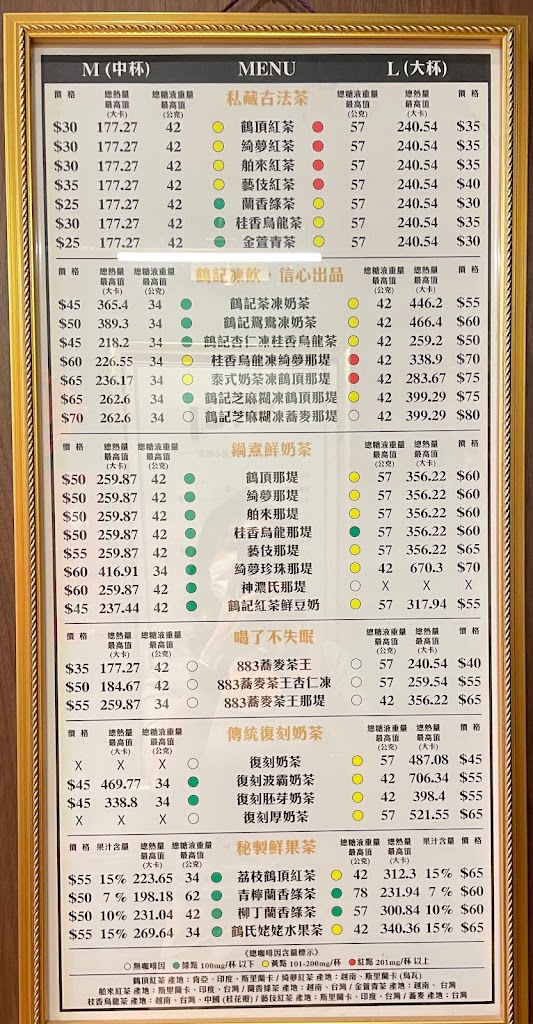 M (中杯) MENU L (大杯)
價格 總熱量最高值(大卡) 總糖液重量最高值(公克) 私藏古法茶 總糖液重量最高值(公克) 總熱量最高值(大卡) 價格
$30 177.27 42 鶴頂紅茶 57 240.54 $35
$30 177.27 42 綺夢紅茶 57 240.54 $35
$30 177.27 42 舶來紅茶 57 240.54 $35
$35 177.27 42 藝伎紅茶 57 240.54 $40
$25 177.27 42 蘭香綠茶 57 240.54 $30
$30 177.27 42 桂香烏龍茶 57 240.54 $35
$25 177.27 42 金萱青茶 57 240.54 $30
價格 總熱量最高值(大卡) 總糖液重量最高值(公克) 鶴記凍飲·信心出品 總糖液重量最高值(公克) 總熱量最高值(大卡) 價格
$45 365.4 34 鶴記茶凍奶茶 42 446.2 $55
$50 389.3 34 鶴記鴛鴦凍奶茶 42 466.4 $60
$45 218.2 34 鶴記杏仁凍桂香烏龍茶 42 259.2 $50
$60 226.55 34 桂香烏龍凍綺夢那堤 42 338.9 $70
$65 236.17 34 泰式奶茶凍鶴頂那堤 42 283.67 $75
$65 262.6 34 鶴記芝麻糊凍鶴頂那堤 42 399.29 $75
$70 262.6 34 鶴記芝麻糊凍蕎麥那堤 42 399.29 $80
價格 總熱量最高值(大卡) 總糖液重量最高值(公克) 鍋煮鮮奶茶 總糖液重量最高值(公克) 總熱量最高值(大卡) 價格
$50 259.87 42 鶴頂那堤 57 356.22 $60
$50 259.87 42 綺夢那堤 57 356.22 $60
$50 259.87 42 舶來那堤 57 356.22 $60
$50 259.87 42 桂香烏龍那堤 57 356.22 $60
$55 259.87 42 藝伎那堤 57 356.22 $65
$60 416.91 34 綺夢珍珠那堤 42 670.3 $70
$60 259.87 42 神濃氏那堤 X X X
$45 237.44 42 鶴記紅茶鮮豆奶 57 317.94 $55
價格 總熱量最高值(大卡) 總糖液重量最高值(公克) 喝了不失眠 總糖液重量最高值(公克) 總熱量最高值(大卡) 價格
$35 177.27 42 883蕎麥茶王 57 240.54 $40
$50 184.67 42 883蕎麥茶王杏仁凍 57 259.54 $55
$55 259.87 34 883蕎麥茶王那堤 42 356.22 $65
價格 總熱量最高值(大卡) 總糖液重量最高值(公克) 傳統復刻奶茶 總糖液重量最高值(公克) 總熱量最高值(大卡) 價格
X X X 復刻奶茶 57 487.08 $45
$45 469.77 34 復刻波霸奶茶 42 706.34 $55
$45 338.8 34 復刻胚芽奶茶 42 398.4 $55
X X X 復刻厚奶茶 57 521.55 $65
價格 果汁含量 總熱量最高值(大卡) 總糖液重量最高值(公克) 秘製鮮果茶 總糖液重量最高值(公克) 總熱量最高值(大卡) 果汁含量 價格
$55 15% 223.65 34 荔枝鶴頂紅茶 42 312.3 15% $65
$50 7% 198.18 62 青檸蘭香綠茶 78 231.94 7% $60
$50 10% 231.04 42 柳丁蘭香綠茶 57 300.84 10% $60
$55 15% 269.64 34 鶴氏姥姥水果茶 42 340.36 15% $65
《總咖啡因含量標示》
無咖啡因 綠點 100mg/杯 以下 黃點 101-200mg/杯 紅點 201mg/杯 以上
鶴頂紅茶 產地：肯亞、印度、斯里蘭卡 / 綺夢紅茶 產地：越南、斯里蘭卡 (烏瓦)
舶來紅茶 產地：斯里蘭卡、印度、台灣 / 蘭香綠茶 產地：越南、台灣 / 金萱青茶 產地：越南、台灣
桂香烏龍茶 產地：越南、台灣、中國 (桂花瓣) / 藝伎紅茶 產地：斯里蘭卡、印度、台灣 / 蕎麥 產地：台灣